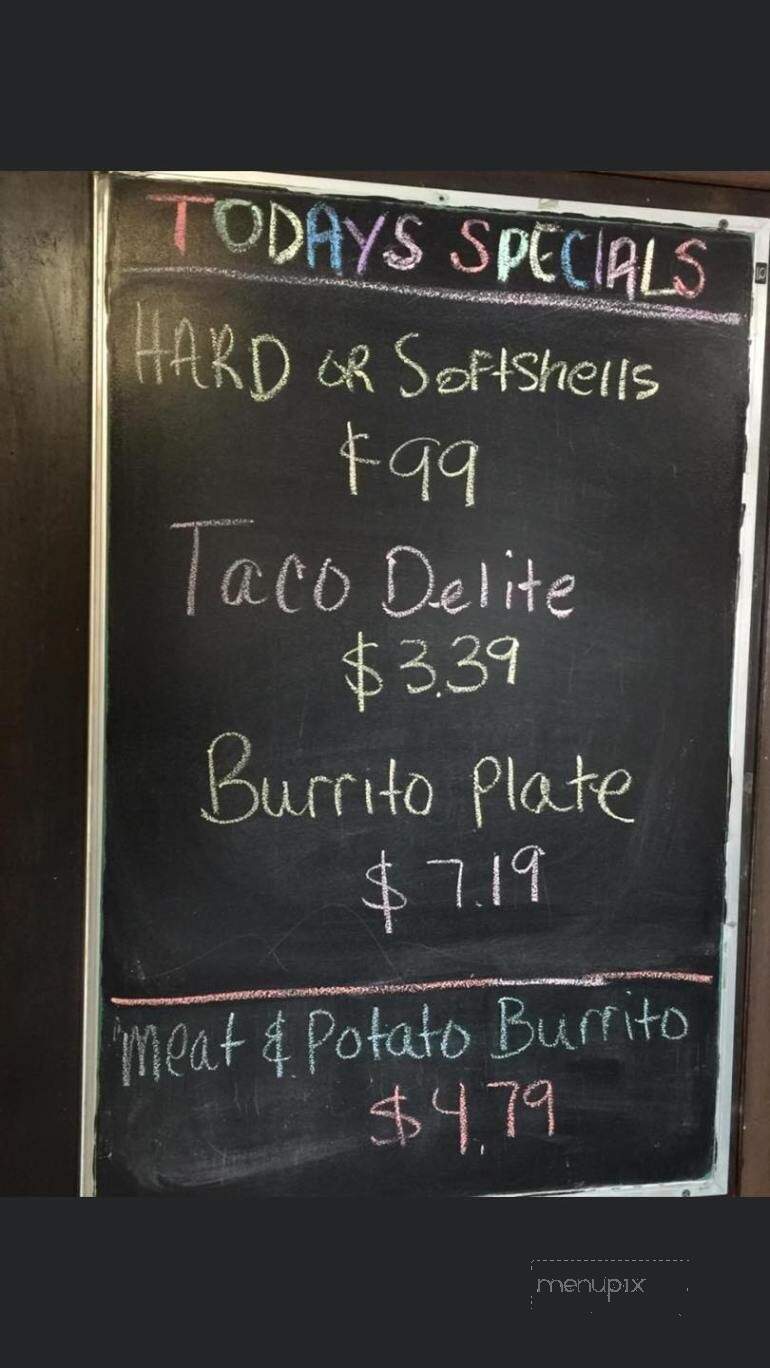 TODAYS SPECIALS
HARD OR SOFtShells
$99
Taco Delite
$3.39
Burrito Plate
$7.19
Meat & Potato Burrito
$4.79
menupix